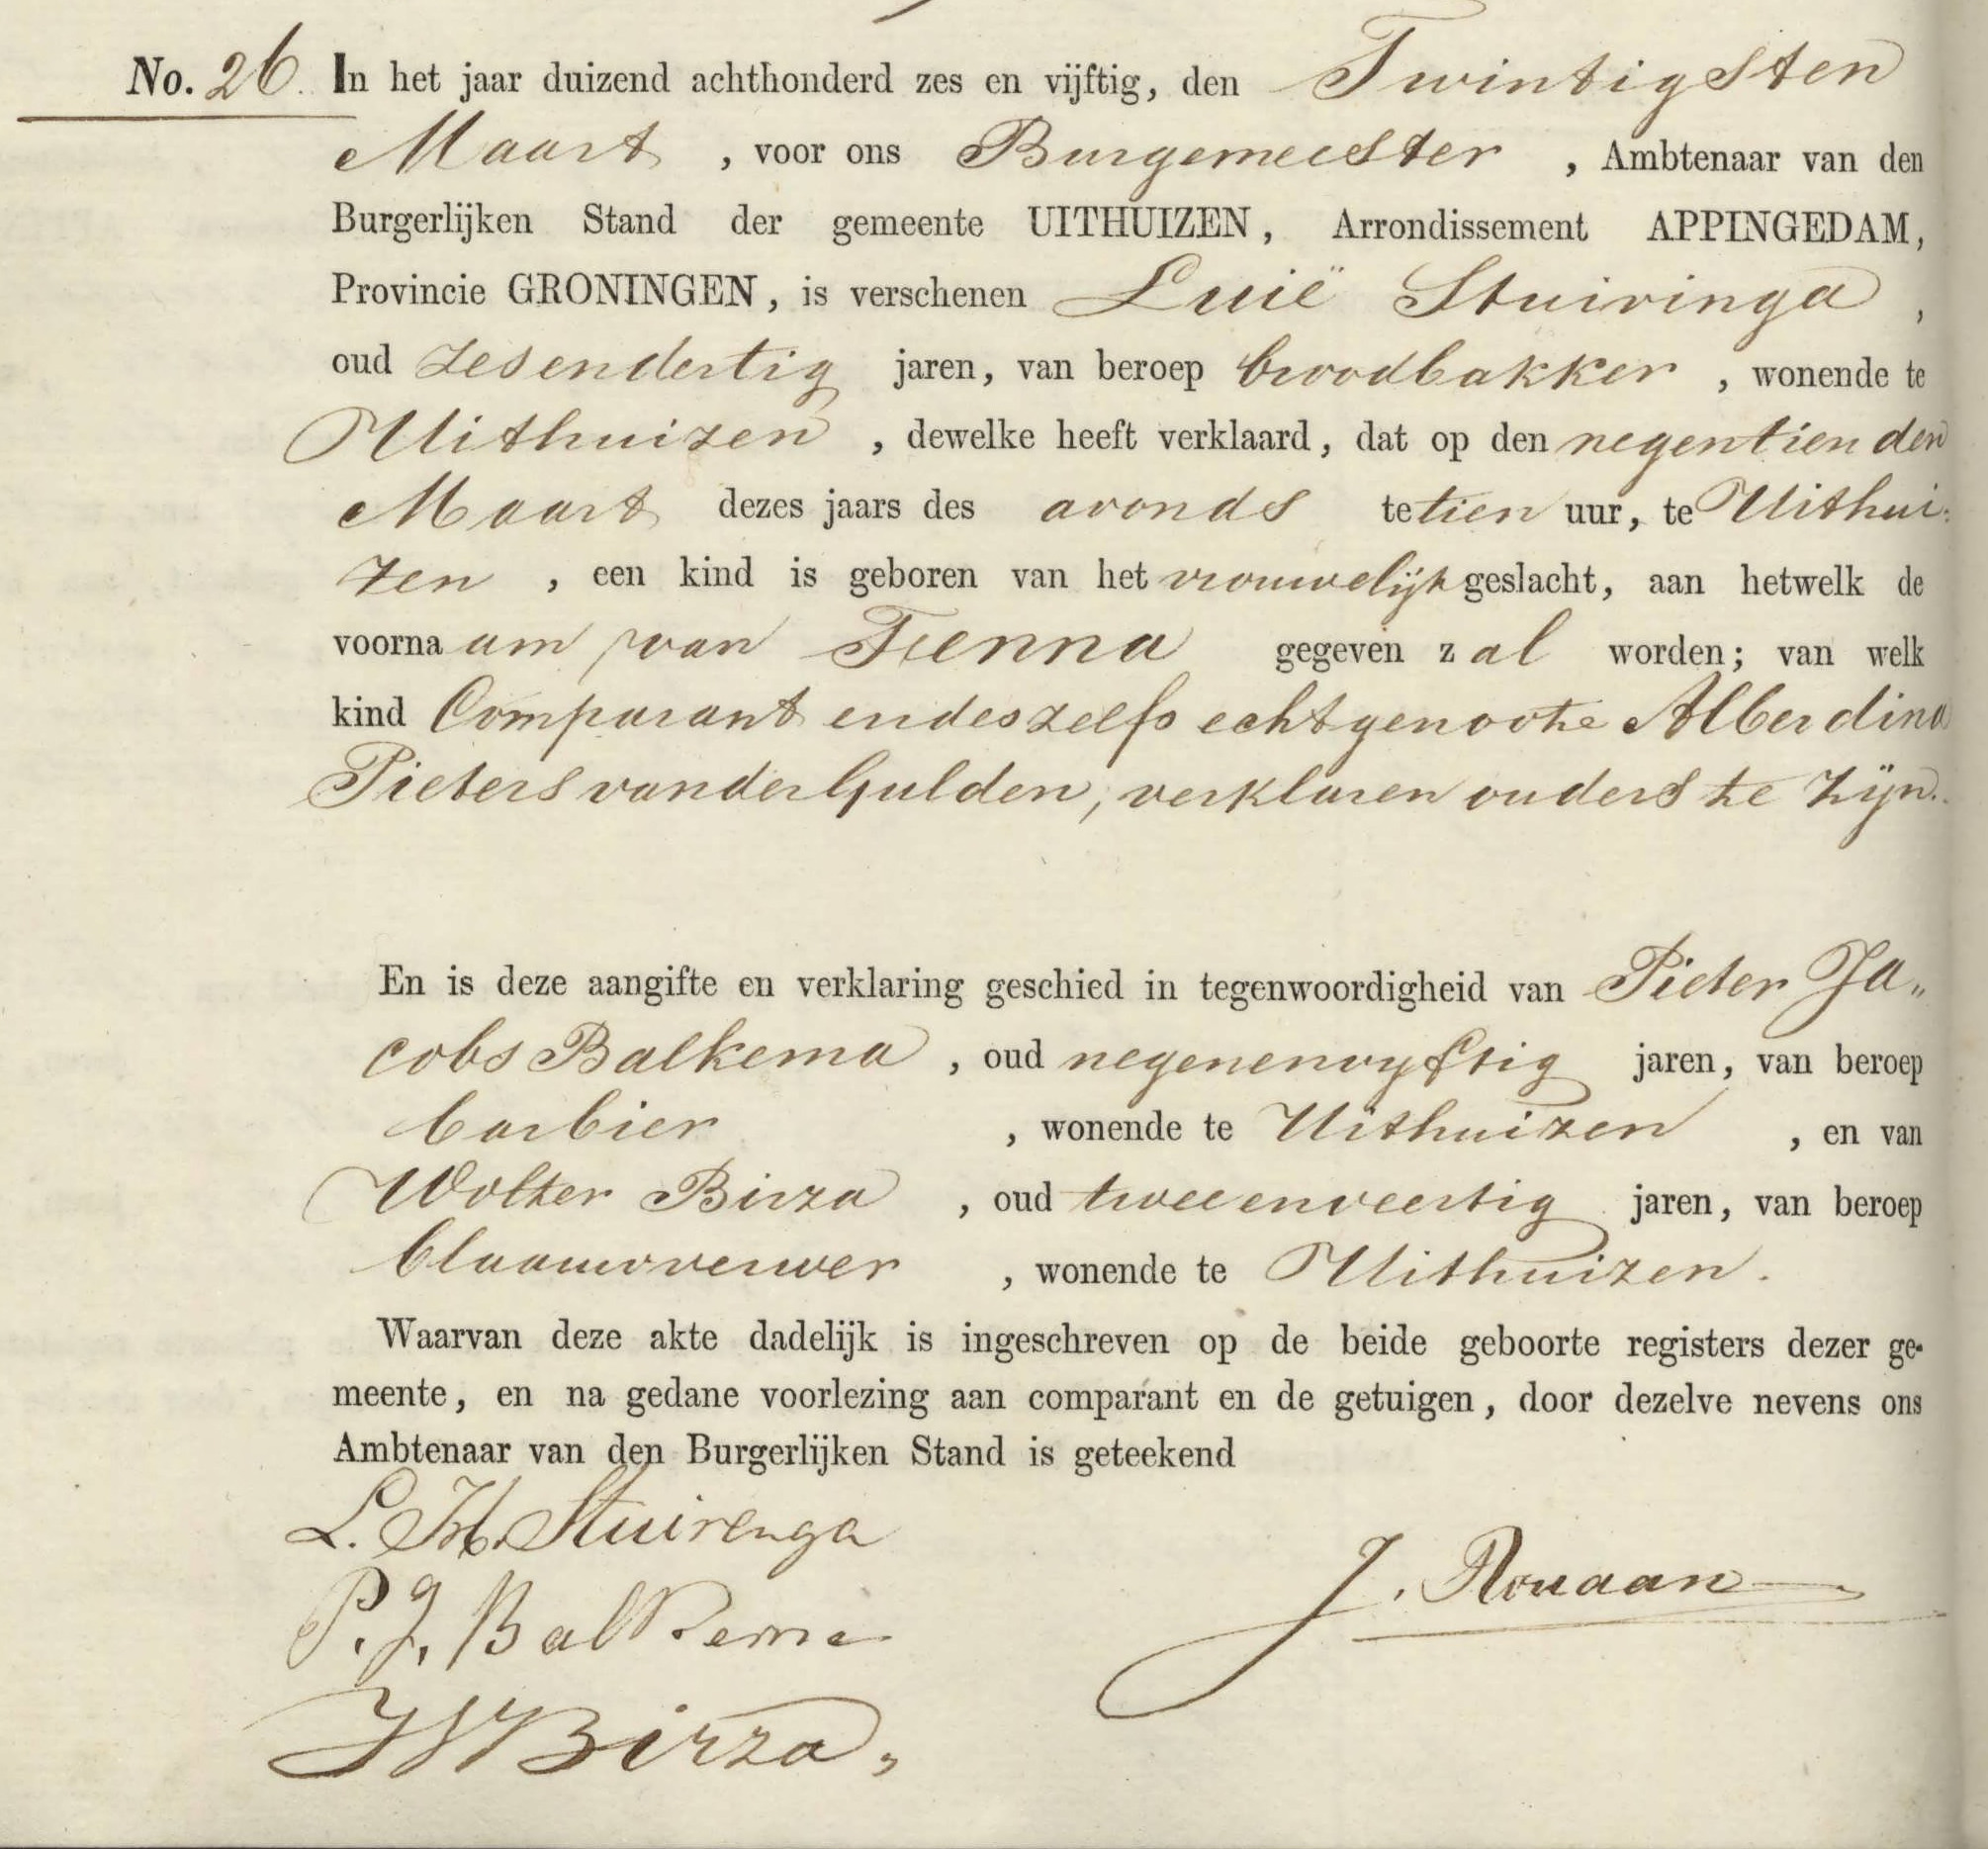 No. 26. In het jaar duizend achthonderd zes en vijftig, den Twintigsten
Maart, voor ons Burgemeester, Ambtenaar van den
Burgerlijken Stand der gemeente UITHUIZEN, Arrondissement APPINGEDAM,
Provincie GRONINGEN, is verschenen Luië Stuivinga,
oud zesendertig jaren, van beroep broodbakker, wonende te
Uithuizen, dewelke heeft verklaard, dat op den negentienden
Maart dezes jaars des avonds te tien uur, te Uithui:
zen, een kind is geboren van het vrouwelijk geslacht, aan hetwelk de
voornaam van Fienna gegeven zal worden; van welk
kind Comparant en deszelfs echtgenoote Alberdina
Pieters van der Gulden, verklaren ouders te zijn.
En is deze aangifte en verklaring geschied in tegenwoordigheid van Pieter Ja„
cobs Balkema, oud negenenvyftig jaren, van beroep
barbier, wonende te Uithuizen, en van
Wolter Birza, oud tweeenveertig jaren, van beroep
blaauwverwer, wonende te Uithuizen.
Waarvan deze akte dadelijk is ingeschreven op de beide geboorte registers dezer ge-
meente, en na gedane voorlezing aan comparant en de getuigen, door dezelve nevens ons
Ambtenaar van den Burgerlijken Stand is geteekend
L. H. Stuirenga
J. Rouaan
P. J. Balkema
W Birza,